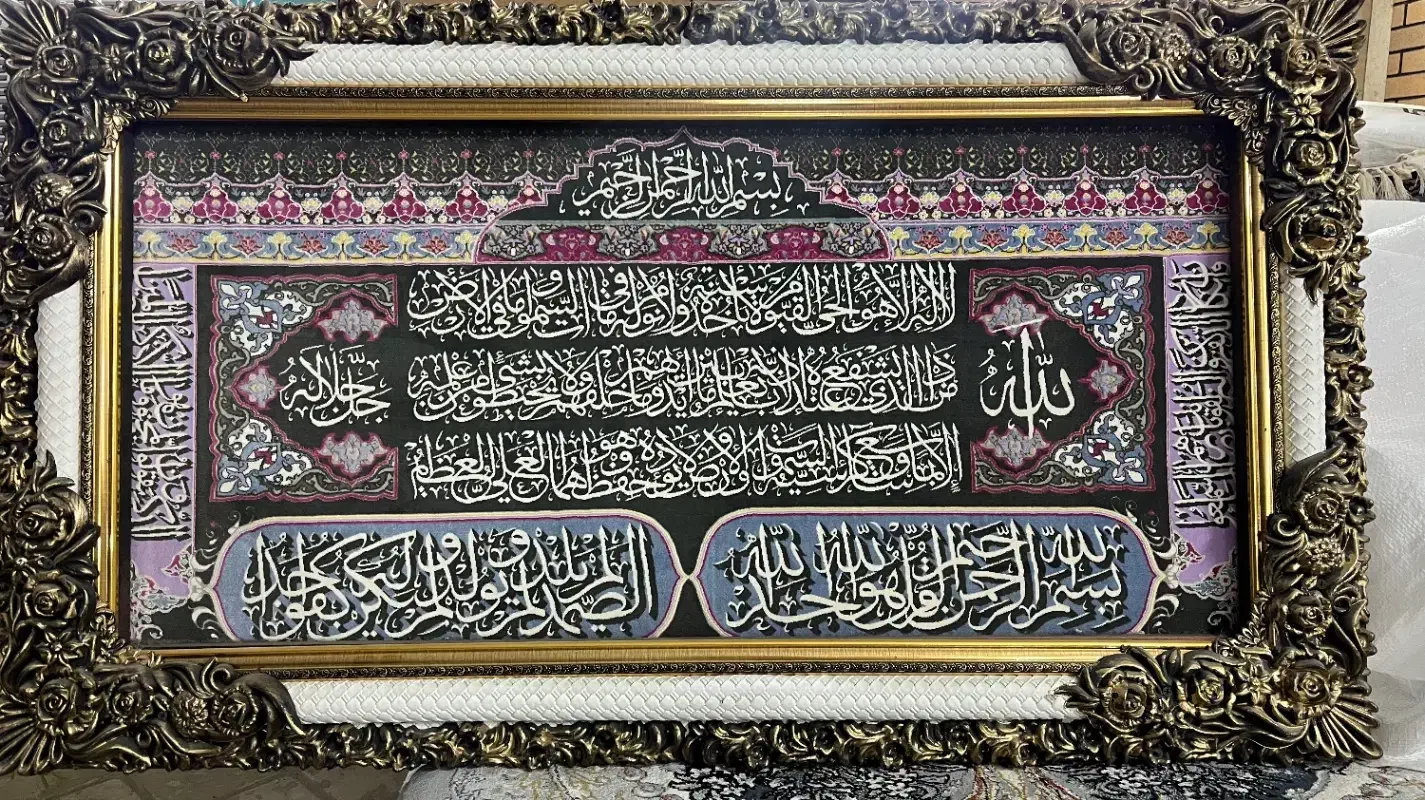 بسم الله الرحمن الرحيم
الله لا إله إلا هو الحي القيوم لا تأخذه سنة ولا نوم له ما في السموات وما في الأرض
من ذا الذي يشفع عنده إلا بإذنه يعلم ما بين أيديهم وما خلفهم ولا يحيطون بشيء من علمه
إلا بما شاء وسع كرسيه السموات والأرض ولا يؤده حفظهما وهو العلي العظيم
الله
جل جلاله
بسم الله الرحمن الرحيم قل هو الله أحد الله
الصمد لم يلد ولم يولد ولم يكن له كفوا أحد